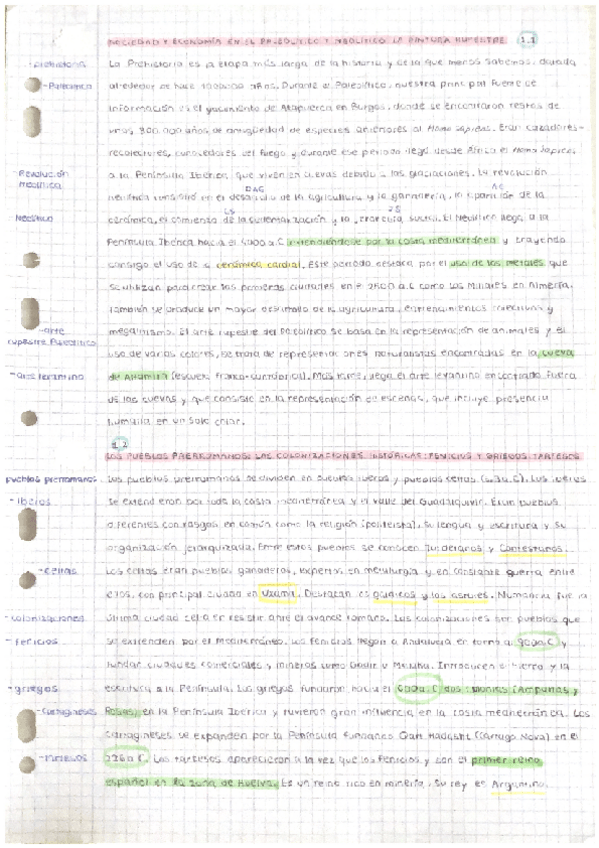 SOCIEDAD Y ECONOMÍA EN EL PALEOLÍTICO Y NEOLÍTICO. LA PINTURA RUPESTRE 1.1
-prehistoria La Prehistoria es la etapa más larga de la historia y de la que menos sabemos, datada
-Paleolítico alrededor de hace 1000000 años. Durante el Paleolítico, nuestra principal fuente de
información es el yacimiento de Atapuerca en Burgos, donde se encontraron restos de
unos 800.000 años de antigüedad de especies anteriores al Homo Sapiens. Eran cazadores-
recolectores, conocedores del fuego y durante ese periodo llegó desde África el Homo Sapiens
-Revolución a la Península Ibérica, que viven en cuevas debido a las glaciaciones. La revolución
neolítica neolítica consistió en el desarrollo de la agricultura y la ganadería, la aparición de la
Neolítico cerámica, el comienzo de la sedentarización y la jerarquía social. El Neolítico llega a la
Península Ibérica hacia el a.C extendiéndose por la costa mediterránea y trayendo
consigo el uso de la cerámica cardial. Este periodo destaca por el uso de los metales que
se utilizan para crear las primeras ciudades en el 2500 a.C como Los Millares en Almería.
También se produce un mayor desarrollo de la agricultura, enterramientos colectivos y
-arte megalitismo. El arte rupestre del Paleolítico se basa en la representación de animales y el
rupestre Paleolítico uso de varios colores, se trata de representaciones naturalistas encontradas en la cueva
-arte levantino de Altamira (escuela franco-cantábrica). Más tarde, llega el arte levantino encontrado fuera
de las cuevas y que consiste en la representación de escenas, que incluye presencia
humana en un solo color.
1.2
LOS PUEBLOS PRERROMANOS. LAS COLONIZACIONES HISTÓRICAS: FENICIOS Y GRIEGOS. TARTESOS
pueblos prerromanos Los pueblos prerromanos se dividen en pueblos íberos y pueblos celtas a.C). Los íberos
-íberos se extendieron por toda la costa mediterránea y el valle del Guadalquivir. Eran pueblos
diferentes con rasgos en común como la religión (politeísta), su lengua y escritura y su
organización jerarquizada. Entre estos pueblos se conocen Turdetanos y Contestanos.
-celtas Los celtas eran pueblos ganaderos, expertos en metalurgia y en constante guerra entre
ellos, con principal ciudad en Uxama. Destacan los galaicos y los astures. Numancia fue la
-colonizaciones última ciudad celta en resistir ante el avance romano. Las colonizaciones son pueblos que
-Fenicios se extienden por el Mediterráneo. Los fenicios llegan a Andalucía en torno a 900 a.C y
fundan ciudades comerciales y mineras como Gadir o Melaka. Introducen el hierro y la
-griegos escritura a la Península. Los griegos fundaron hacia el 600 a.C dos colonias (Ampurias y
-Cartagineses Rosas), en la Península Ibérica y tuvieron gran influencia en la costa mediterránea. Los
Cartagineses se expanden por la Península fundando Qart Hadasht (Cartago Nova) en el
-Tartesos 226 a.C. Los tartesos aparecieron a la vez que los fenicios y son el primer reino
español en la zona de Huelva. Es un reino rico en minería, su rey es Argantonio.